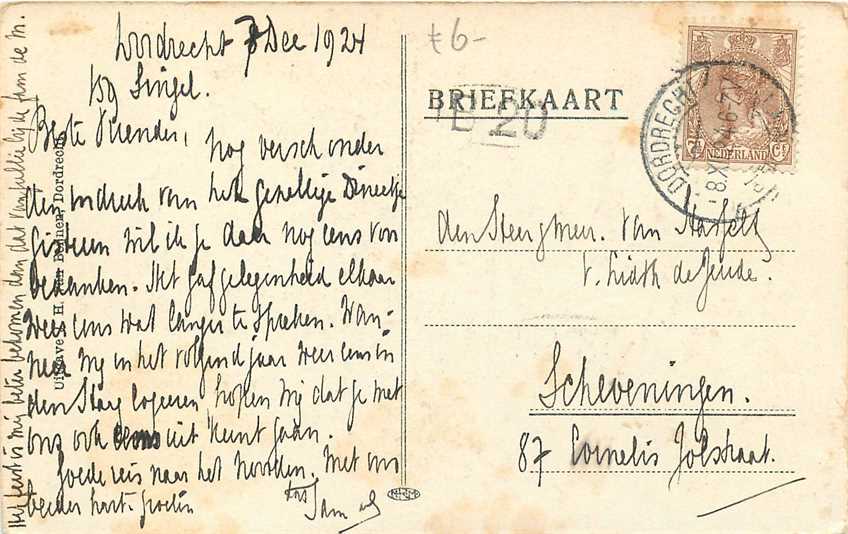 Dordrecht 8 Dec 1924
159 Singel.
Beste Vrienden,
nog versch onder
den indruk van het gezellige Dineetje
gisteren wil ik je daar nog eens voor
bedanken. Het gaf gelegenheid elkaar
weer eens wat langer te spreken. Wan-
neer wij in het volgend jaar weer eens in
den Haag logeeren, hopen wij dat je met
ons ook eens uit kunt gaan.
Goede reis naar het Noorden. Met ons
beider hart. groeten
Het feest is mij beter bekomen dan dat van
Uitgave H. Dordrecht
£6-
BRIEFKAART
B 20
DORDRECHT
NEDERLAND
7½ Ct
den Heer Mevr. van Hasselt
v. Lidth de Jeude.
Scheveningen.
87 Cornelis Jolstraat.